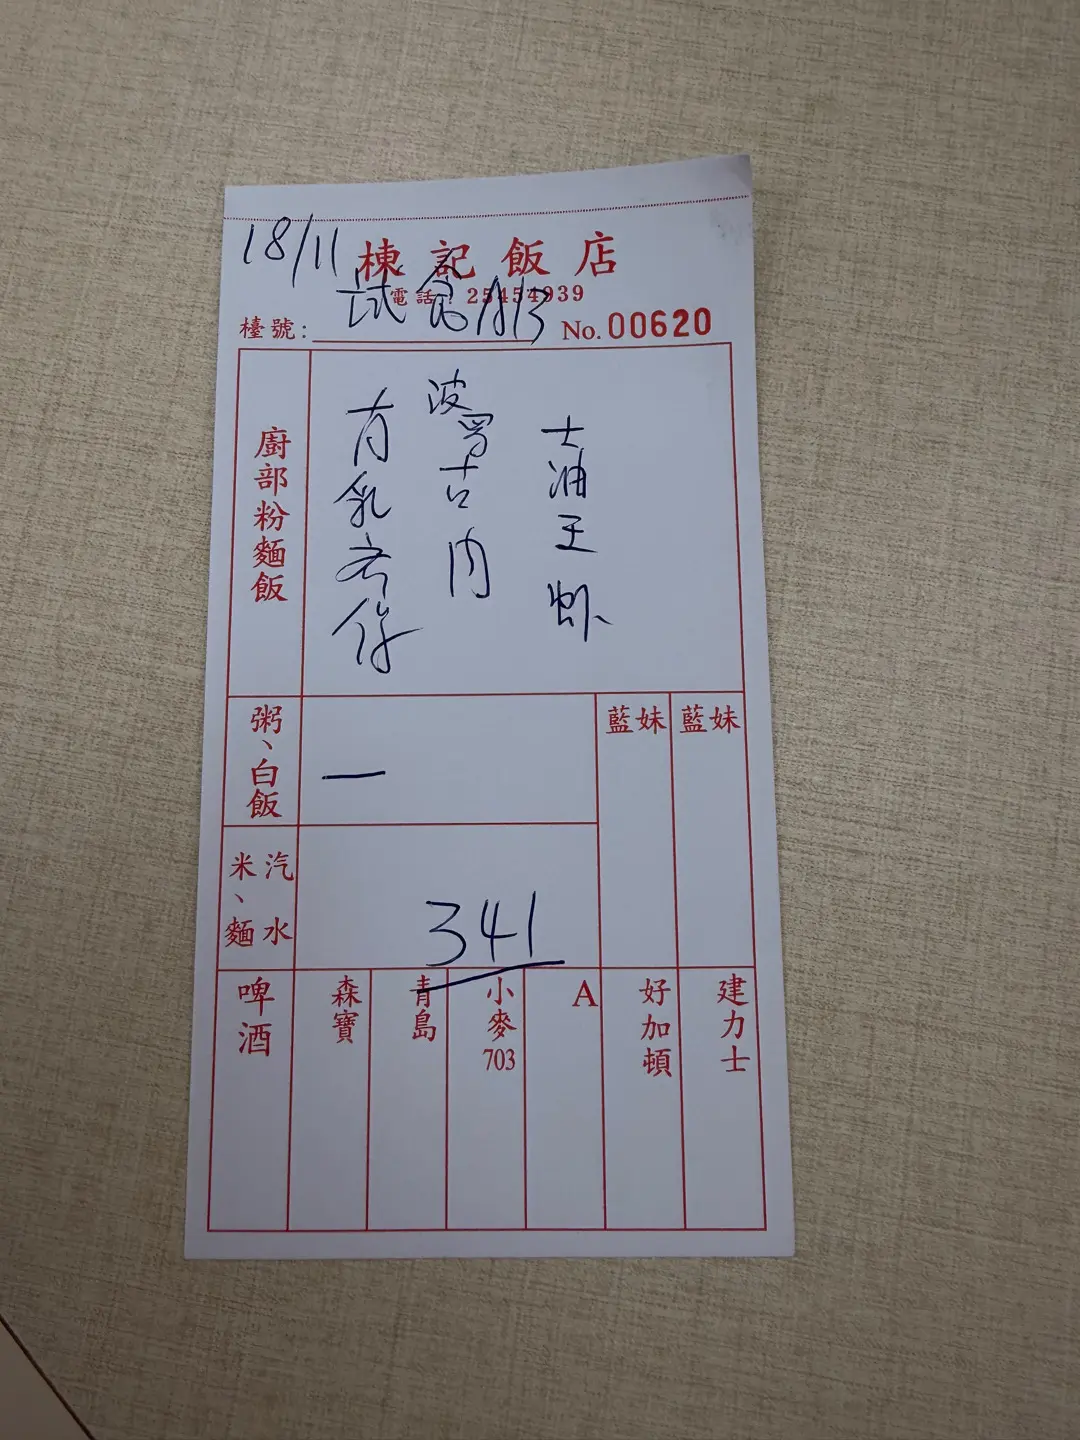 18/11
棟記飯店
電話：25454939
試食
檯號：
No. 00620
廚部粉麵飯
波蘿古肉
士油王虾
粥、白飯
一
藍妹
藍妹
米、麵
汽水
341
啤酒
森寶
青島
小麥703
A
好加頓
建力士